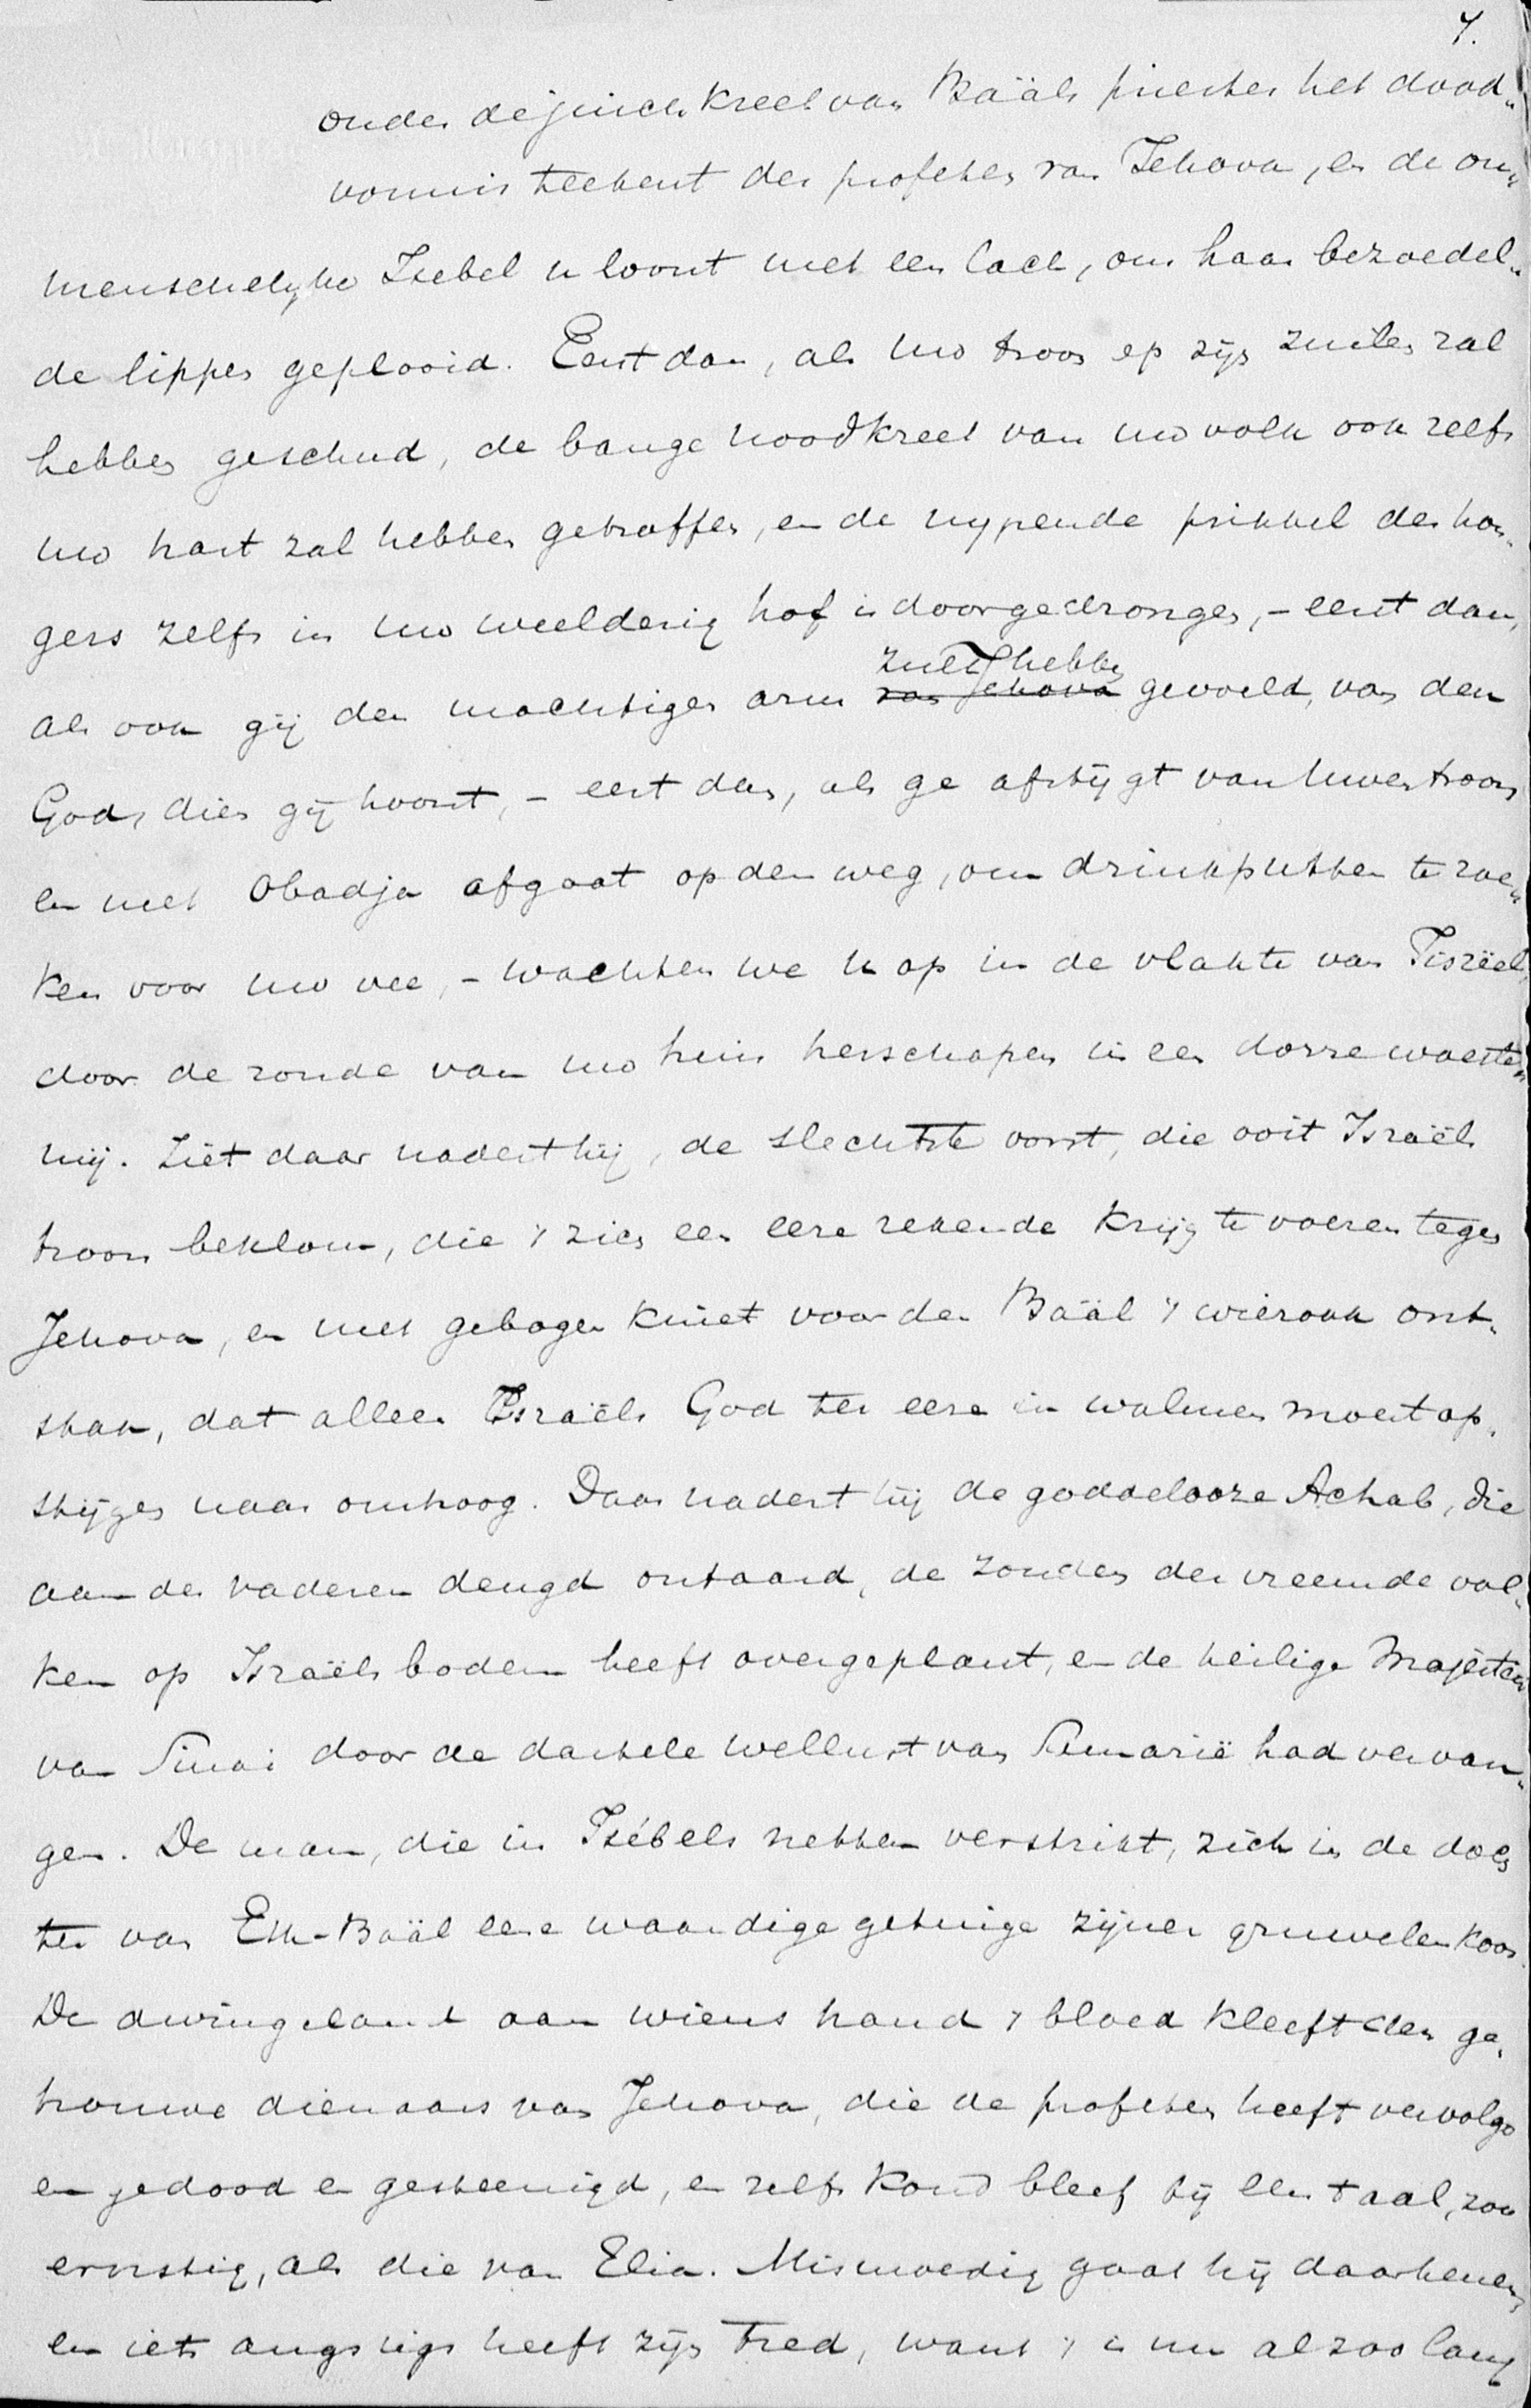 7.
onder de juichkreet van Baäls priester het dood„
vonnis teekent der profeten van Jehova, en de on„
menschelyke Isebel u loont met een lach, om haar bezoedel„
de lippen geplooid. Eerst dan, als uw troon op zijn zuilen zal
hebben geschud, de bange noodkreet van uw volk ook zelfs
uw hart zal hebben getroffen, en de nypende prikkel des hon„
gers zelfs in uw weelderig hof is doorgedrongen, – eerst dan,
zult hebben
als ook gij den machtigen arm van Jehova gevoeld, van den
God, dien gij hoont, – eerst dan, als ge afstijgt van Uwen troon
en met Obadja afgaat op den weg, om drinkputten te zoe„
ken voor uw vee, – wachten we u op in de vlakte van Jisreël,
door de zonde van uw huis herschapen in een dorre woeste„
nij. Ziet daar nadert hij, de slechtste vorst, die ooit Israëls
troon beklom, die 't zich een eere rekende krijg te voeren tegen
Jehova, en met gebogen kniet voor den Baäl 't wierook ont„
stak, dat alleen Israëls God ter eere in walmen moest op„
stijgen naar omhoog. Daar nadert hij de goddelooze Achab, die
aan der vaderen deugd ontaard, de zonden der vreemde vol„
ken op Israëls bodem heeft overgeplant, en de heilige Majesteit
van Sinai door de dartele wellust van Samarië had vervan„
gen. De man, die in Isébels netten verstrikt, zich in de doch
ter van Eth-Baäl eene waardige getuige zijner gruwelen koos.
De dwingeland aan wiens hand 't bloed kleeft der ge„
trouwe dienaars van Jehova, die de profeten heeft vervolgd
en gedood en gesteenigd, en zelfs koud bleef bij een taal, zoo
ernstig, als die van Elia. Mismoedig gaat hij daarhenen,
en iets angstigs heeft zijn tred, want 't is nu al zoo lang